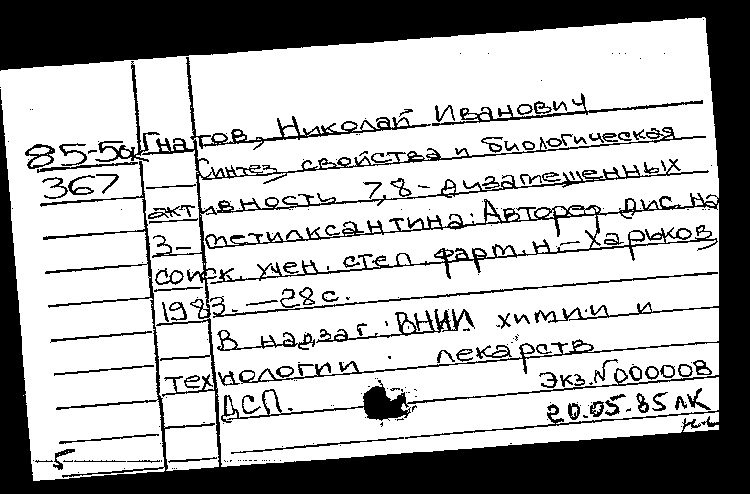 85-5ок Гнатов, Николай Иванович
367 Синтез, свойства и биологическая
активность 7,8-дизамещенных
3-метилксантина: Автореф. дис. на
соиск. учен. степ. фарм. н. - Харьков,
1983. - 28 с.
В надзаг.: ВНИИ химии и
технологии лекарств
Экз. N 00000В
ДСП.
20.05.85 ЛК
5